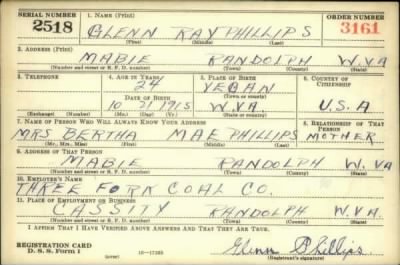 SERIAL NUMBER 1. NAME (Print) ORDER NUMBER
2518 GLENN RAY PHILLIPS 3161
(First) (Middle) (Last)
2. ADDRESS (Print)
MABIE RANDOLPH W.VA
(Number and street or R. F. D. number) (Town) (County) (State)
3. TELEPHONE 4. AGE IN YEARS 5. PLACE OF BIRTH 6. COUNTRY OF CITIZENSHIP
24 YEGAN
DATE OF BIRTH (Town or county)
10 21 1915 W.VA. U.S.A
(Exchange) (Number) (Mo.) (Day) (Yr.) (State or country)
7. NAME OF PERSON WHO WILL ALWAYS KNOW YOUR ADDRESS 8. RELATIONSHIP OF THAT PERSON
MRS BERTHA MAE PHILLIPS MOTHER
(Mr., Mrs., Miss) (First) (Middle) (Last)
9. ADDRESS OF THAT PERSON
MABIE RANDOLPH W. VA
(Number and street or R. F. D. number) (Town) (County) (State)
10. EMPLOYER'S NAME
THREE FORK COAL CO.
11. PLACE OF EMPLOYMENT OR BUSINESS
CASSITY RANDOLPH W.VA.
(Number and street or R. F. D. number) (Town) (County) (State)
I AFFIRM THAT I HAVE VERIFIED ABOVE ANSWERS AND THAT THEY ARE TRUE.
REGISTRATION CARD
D. S. S. Form 1 (over) Glenn Phillips
(Registrant's signature)